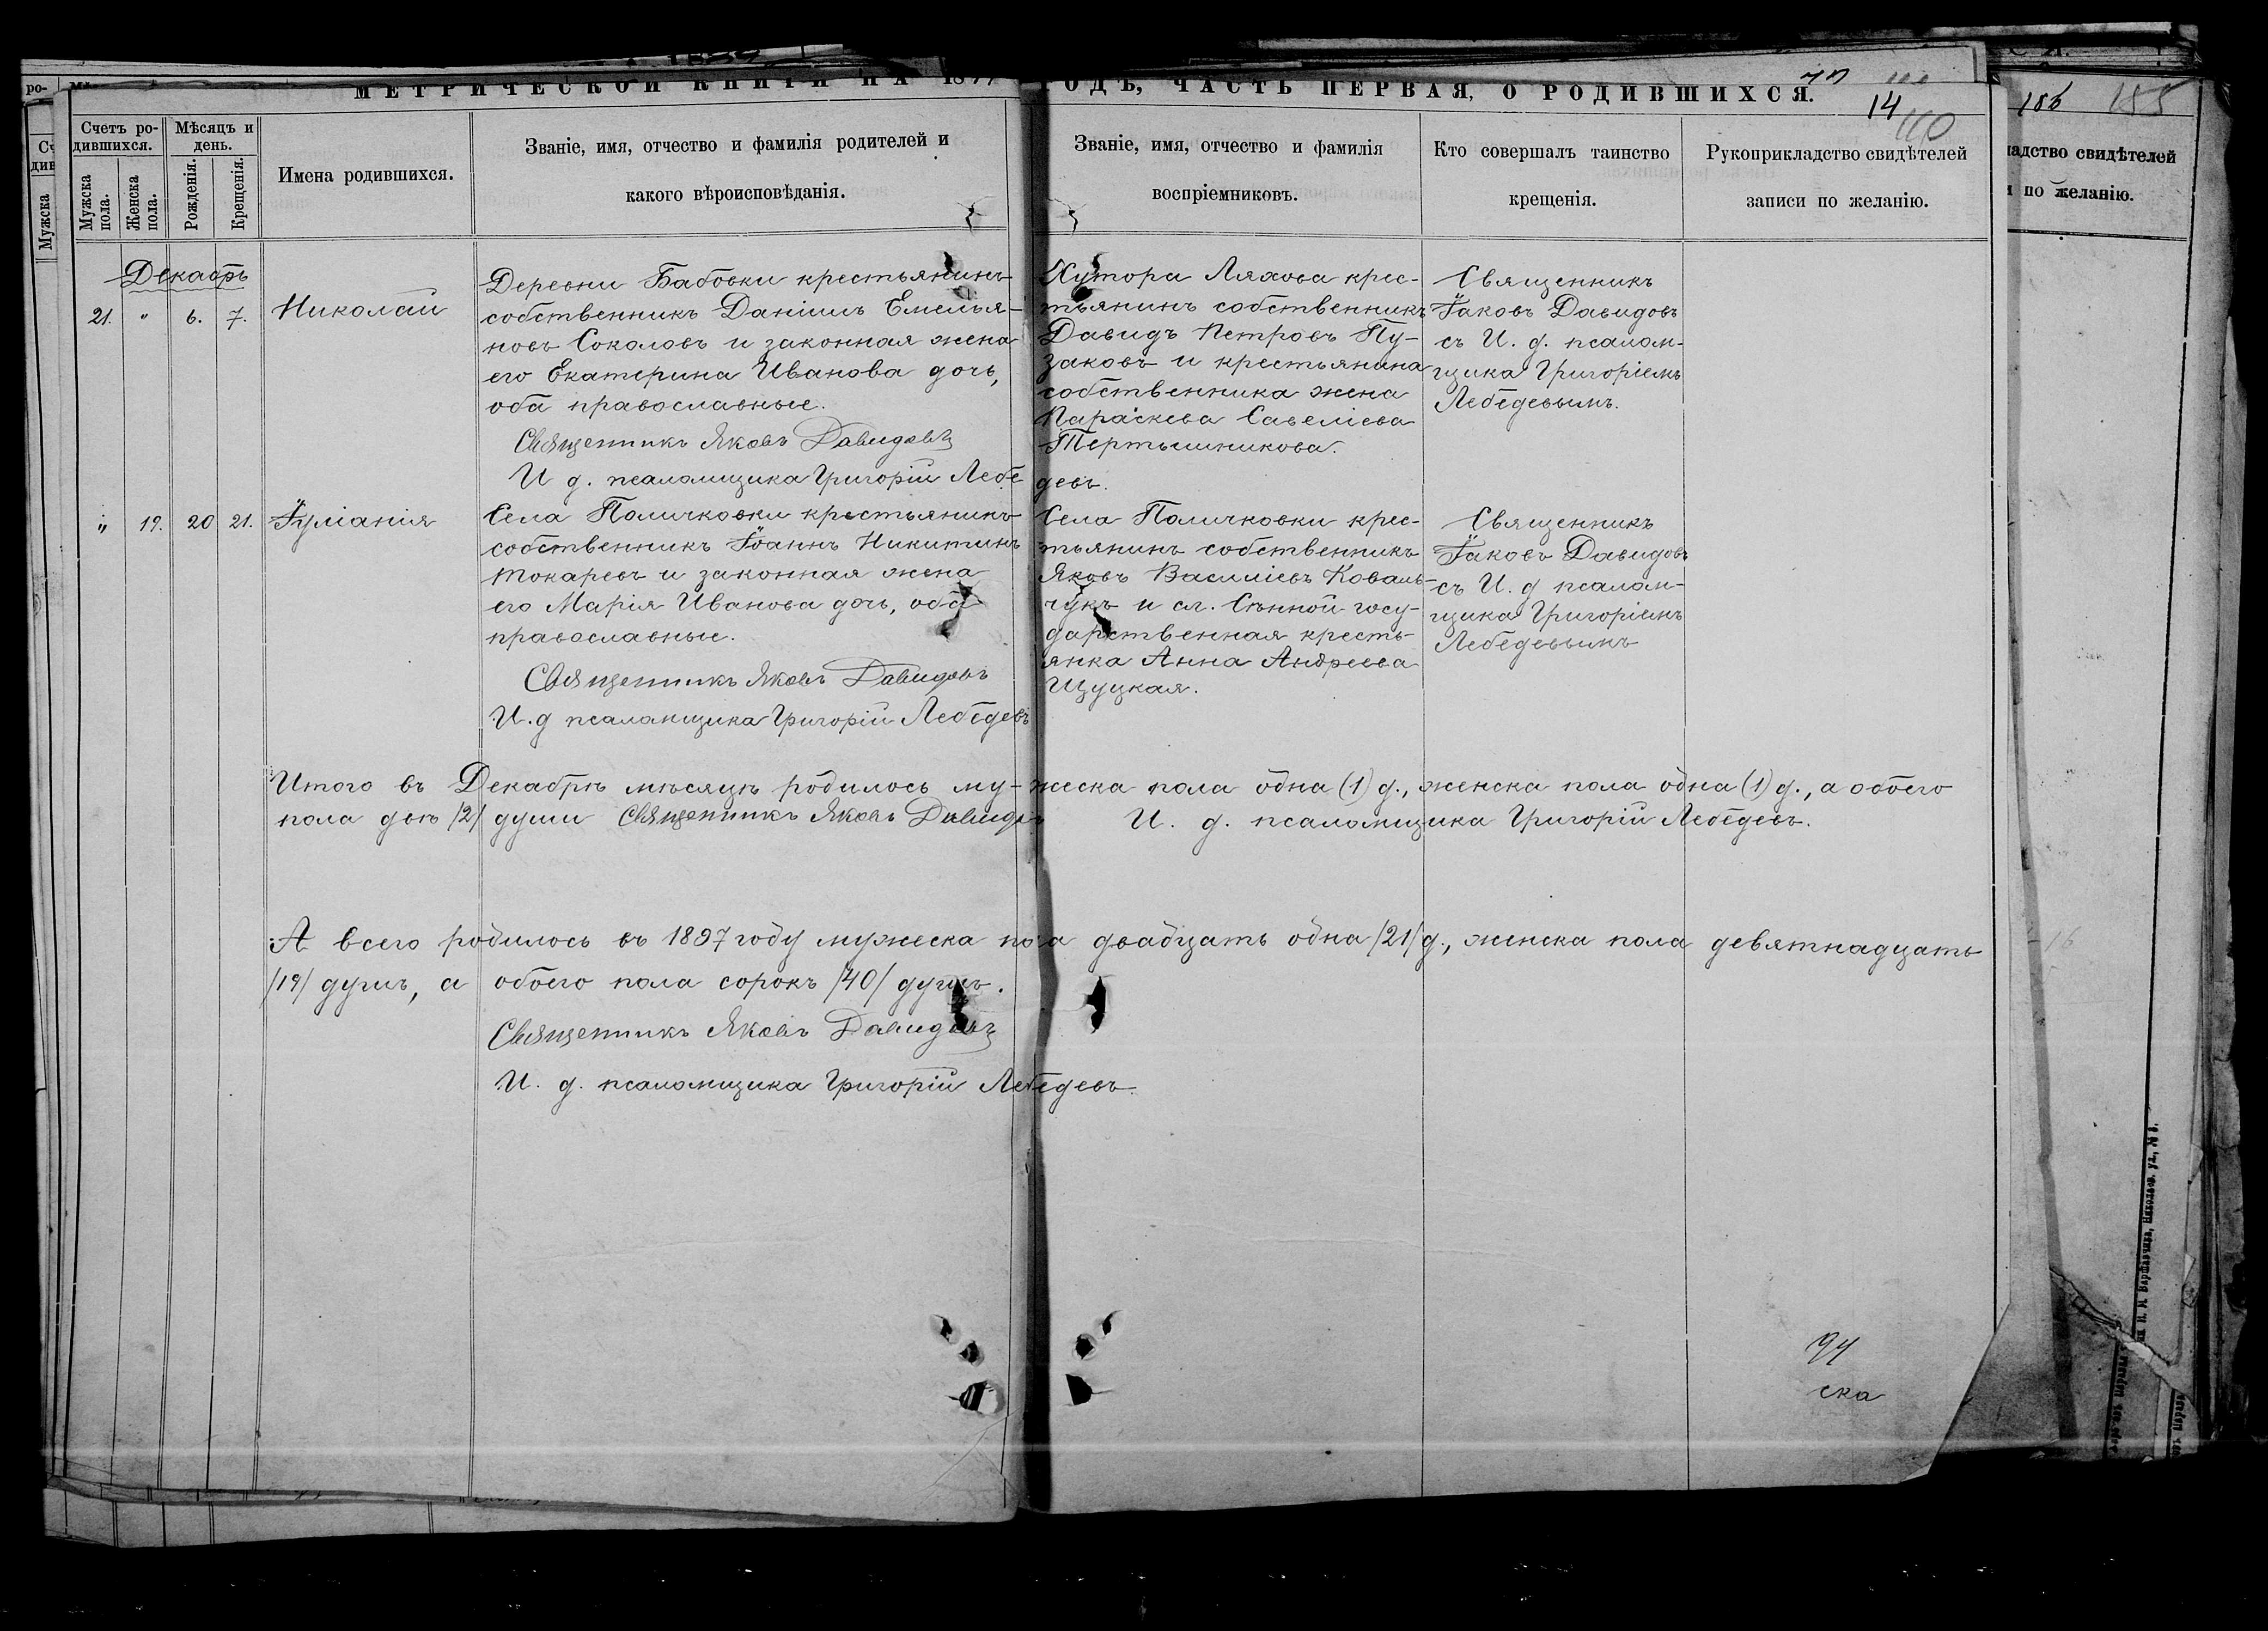 МЕТРИЧЕСКОЙ КНИГИ НА 1897 ГОДЪ, ЧАСТЬ ПЕРВАЯ, О РОДИВШИХСЯ.
14
110
186 185
Счетъ ро-
дившихся.
Мужска
пола.
Женска
пола.
Мѣсяцъ и
день.
Рожденія.
Крещенія.
Имена родившихся.
Званіе, имя, отчество и фамилія родителей и
какого вѣроисповѣданія.
Званіе, имя, отчество и фамилія
воспріемниковъ.
Кто совершалъ таинство
крещенія.
Рукоприкладство свидѣтелей
записи по желанію.
Декабрь
21. " 6. 7.
Николай
Деревни Бабовки крестьянинъ
собственникъ Даніилъ Емелья-
новъ Соколовъ и законная жена
его Екатерина Иванова дочь,
оба православные.
Священникъ Яковъ Давидовъ
И д. псаломщика Григорій Лебе
девъ.
Хутора Ляхова крес-
тьянинъ собственникъ
Давидъ Петровъ Пу-
заковъ и крестьянина
собственника жена
Параскева Савеліева
Тертышникова.
Священникъ
Іаковъ Давидовъ
съ И. д. псалом-
щика Григоріемъ
Лебедевымъ.
" 19. 20 21.
Іуліанія
Села Поличковки крестьянинъ
собственникъ Іоаннъ Никитинъ
Токаревъ и законная жена
его Марія Иванова дочь, оба
православные.
Священникъ Яковъ Давидовъ
И. д псаломщика Григорій Лебедевъ
Села Поличковки крес-
тьянинъ собственникъ
Яковъ Василіевъ Коваль-
чукъ и сл. Сѣнной госу-
дарственная кресть-
янка Анна Андреева
Щуцкая.
Священникъ
Іаковъ Давидовъ
съ И. д псалом-
щика Григоріемъ
Лебедевымъ
Итого въ Декабрѣ мѣсяцѣ родилось му-жеска пола одна (1) д., женска пола одна (1) д., а обоего
пола двѣ /2/ души Священникъ Яковъ Давидовъ И. д. псаломщика Григорій Лебедевъ.
А всего родилось въ 1897 году мужеска пола двадцать одна /21/ д., женска пола девятнадцать
/19/ душъ, а обоего пола сорокъ /40/ душъ.
Священникъ Яковъ Давидовъ
И. д. псаломщика Григорій Лебедевъ.
ска